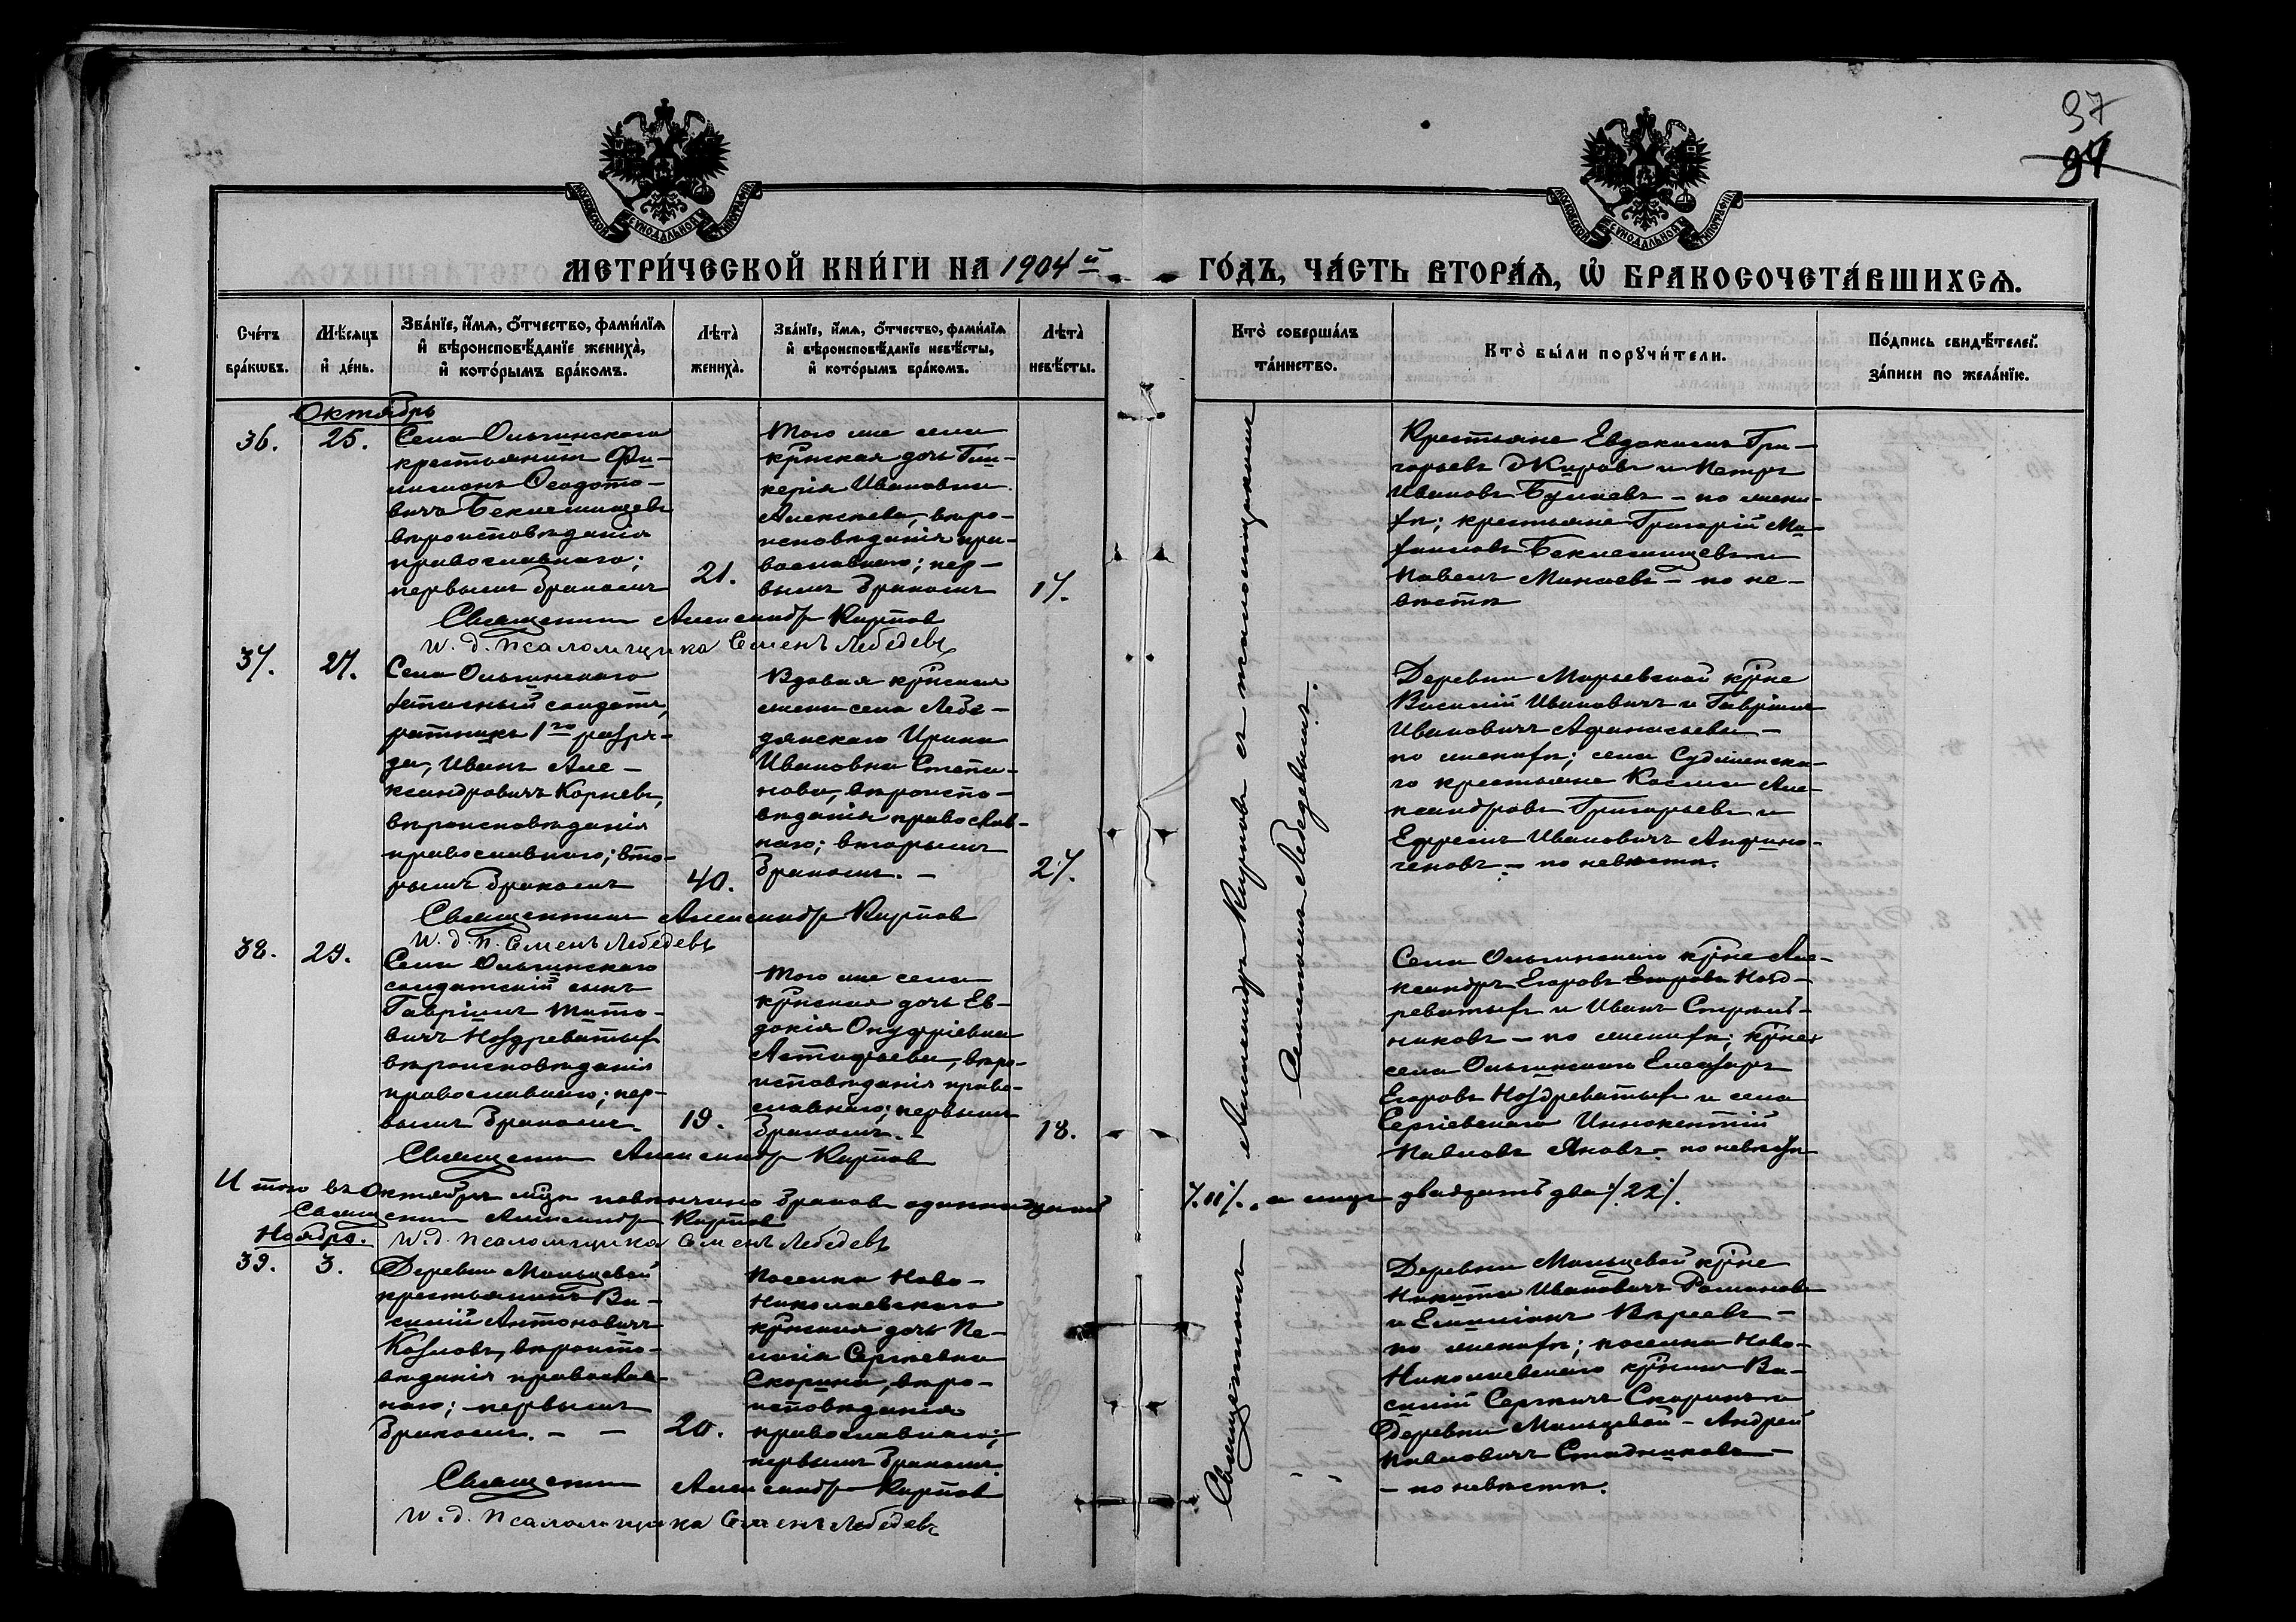 97
94
МОСКОВСКОЙ СѴНОДАЛЬНОЙ ТИПОГРАФІИ
МОСКОВСКОЙ СѴНОДАЛЬНОЙ ТИПОГРАФІИ
МЕТРИ́ЧЕСКОЙ КНИ́ГИ НА 1904 й ГО́ДЪ, ЧА́СТЬ ВТОРА́Я, Ѡ҆ БРАКОСОЧЕТА́ВШИХСЯ.
Сче́тъ бра́кѡвъ.
Мѣ́сяцъ и҆ де́нь.
Зва́нїе, и҆́мя, ѻ҆́тчество, фами́лїя
и҆ вѣроисповѣ́данїе жениха̀,
и҆ кото́рымъ бра́комъ.
Лѣта̀ жениха̀.
Зва́нїе, и҆́мя, ѻ҆́тчество, фами́лїя
и҆ вѣроисповѣ́данїе невѣ́сты,
и҆ кото́рымъ бра́комъ.
Лѣта̀ невѣ́сты.
Кто̀ соверша́лъ та́инство.
Кто̀ бы́ли порꙋчи́тели.
По́дпись свидѣ́телей
за́писи по жела́нїю.
Октябрь
36.
25.
Села Ольгинскаго
крестьянинъ Фи-
лимонъ Ѳеодото-
вичъ Беклемищевъ
вѣроисповѣданія
православнаго;
первымъ бракомъ
21.
Того же села
кр͠нская дочь Гли-
керія Ивановна
Алексѣева, вѣро-
исповѣданія пра-
вославнаго; пер-
вымъ бракомъ
17.
Крестьяне Евдокимъ Гри-
горьевъ Жировъ и Петръ
Ивановъ Бунаевъ - по жени-
хѣ; крестьяне Григорій Ми-
хаиловъ Беклемищевъ и
Павелъ Минаевъ - по не-
вѣстѣ
Священникъ Александръ Карповъ
И. д. псаломщика Семенъ Лебедевъ
37.
27.
Села Ольгинскаго
запасный солдатъ,
ратникъ 1го разря-
да, Иванъ Але-
ксандровичъ Корневъ,
вѣроисповѣданія
православнаго; вто-
рымъ бракомъ
40.
Вдовая кр͠нская
жена села Лебе-
дянскаго Ирина
Ивановна Степа-
нова, вѣроиспо-
вѣданія православ-
наго; вторымъ
бракомъ. -
27.
Деревни Марьевской кр͠не
Василій Ивановичъ и Гавріилъ
Ивановичъ Афанасьевы -
по женихѣ; села Судженска-
го крестьяне Косма Але-
ксандровъ Григорьевъ и
Ефремъ Ивановичъ Анфино-
геновъ - по невѣстѣ.
Священникъ Александръ Карповъ
И. д. п. Семенъ Лебедевъ
38.
29.
Села Ольгинскаго
солдатскій сынъ
Гавріилъ Тито-
вичъ Ноздреватыхъ
вѣроисповѣданія
православнаго; пер-
вымъ бракомъ.
19.
Того же села
кр͠нская дочь Ев-
докія Онуфріевна
Астафьева, вѣро-
исповѣданія право-
славнаго; первымъ
бракомъ. -
18.
Села Ольгинскаго кр͠не Але-
ксандръ Егоровъ Егоровъ Нозд-
реватыхъ и Иванъ
по женихѣ; кр͠не
села Ольгинскаго Елеазаръ
Егоровъ Ноздреватыхъ и села
Сергіевскаго Иннокентій
Павловъ Яновъ - по невѣстѣ
Священникъ Александръ Карповъ
Итого въ Октябрѣ м͠цѣ повѣнчано браковъ одиннадцать /.11/., а лицъ двадцать два /.22/.
Священникъ Александръ Карповъ
И. д. псаломщика Семенъ Лебедевъ
Ноябрь.
39.
3.
Деревни Мальцевой
крестьянинъ Ва-
силій Антоновичъ
Козловъ, вѣроиспо-
вѣданія православ-
наго; первымъ
бракомъ. - -
20.
Поселка Ново-
Николаевскаго
кр͠нская дочь Пе-
лагія Сергѣевна
Скорина, вѣро-
исповѣданія
православнаго;
первымъ бракомъ.
Деревни Мальцевой кр͠не
Никита Ивановичъ Романовъ
и Емиліанъ
по женихѣ; поселка Ново-
Николаевскаго кр͠нинъ Ва-
силій Сергѣевичъ Скоринъ и
деревни Мальцевой - Андрей
Павловичъ Стадниковъ -
- по невѣстѣ.
Священникъ Александръ Карповъ
И. д. псаломщика Семенъ Лебедевъ
Священникъ Александръ Карповъ съ псаломщикомъ
Семеномъ Лебедевымъ.